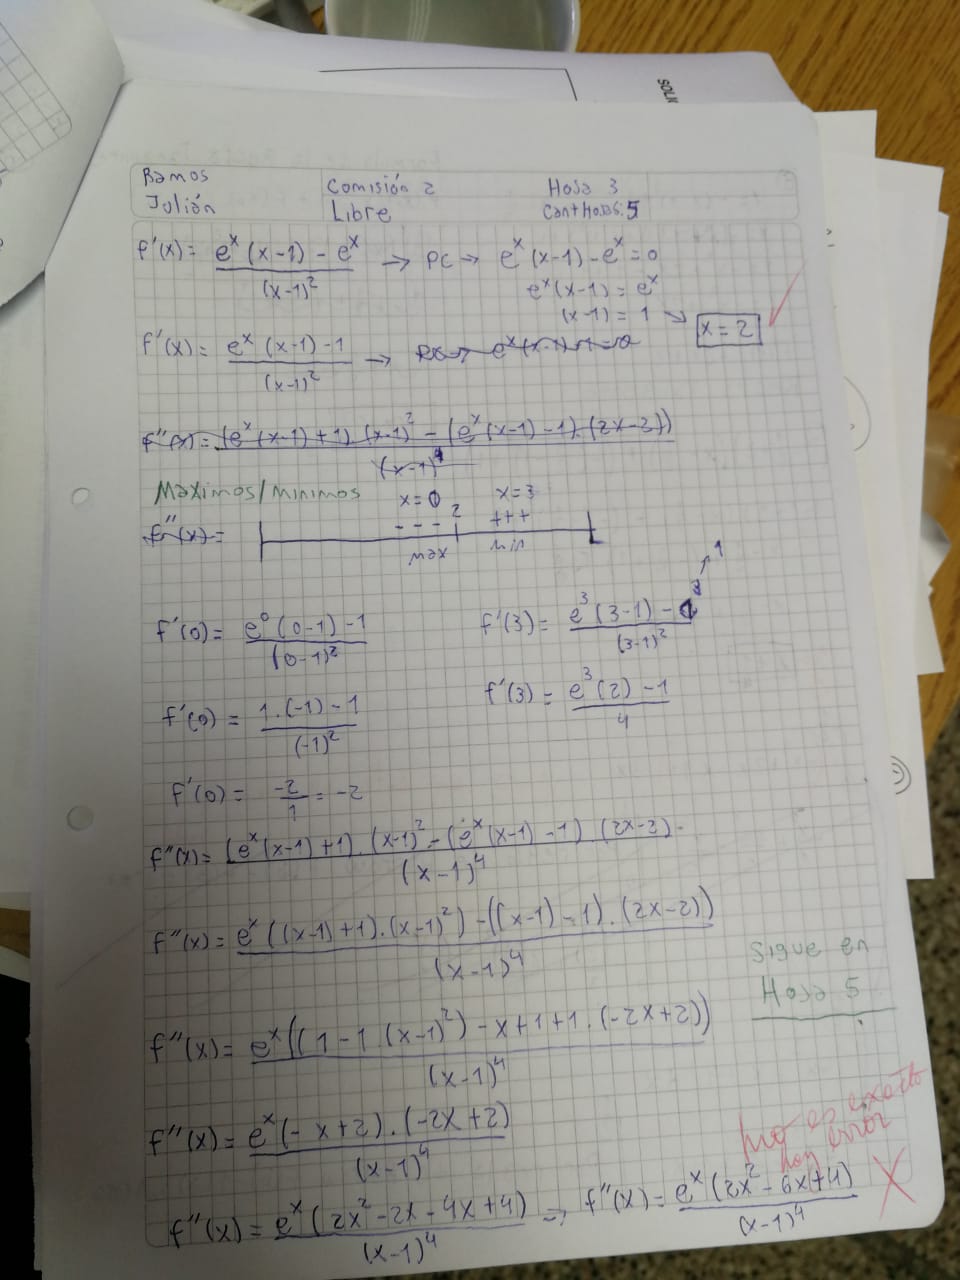 SOLI
Ramos
Julián
Comisión 2
Libre
Hoja 3
Cant Hojas: 5
f'(x) = e^x (x-1) - e^x / (x-1)^2 → PC → e^x (x-1) - e^x = 0
e^x (x-1) = e^x
(x-1) = 1 → x = 2
f'(x) = e^x (x-1) - 1 / (x-1)^2 →
f''(x) = (e^x (x-1) + 1) . (x-1)^2 - (e^x (x-1) - 1) . (2x-2)) / (x-1)^4
Maximos/Minimos
x=0 2 x=3
--- +++
f''(x) =
max min
f'(0) = e^0 (0-1) - 1 / (0-1)^2
f'(3) = e^3 (3-1) - 1 / (3-1)^2
f'(0) = 1.(-1) - 1 / (-1)^2
f'(3) = e^3 (2) - 1 / 4
f'(0) = -2/1 = -2
f''(x) = (e^x (x-1) + 1) . (x-1)^2 - (e^x (x-1) - 1) . (2x-2) / (x-1)^4
f''(x) = e^x ((x-1) + 1) . (x-1)^2) - ((x-1) - 1) . (2x-2)) / (x-1)^4
Sigue en
Hoja 5
f''(x) = e^x ((1 - 1 (x-1)^2) - x + 1 + 1 . (-2x+2)) / (x-1)^4
f''(x) = e^x (-x+2) . (-2x+2) / (x-1)^4
no es exacto
hay error
f''(x) = e^x (2x^2 - 2x - 4x + 4) / (x-1)^4 → f''(x) = e^x (2x^2 - 6x + 4) / (x-1)^4